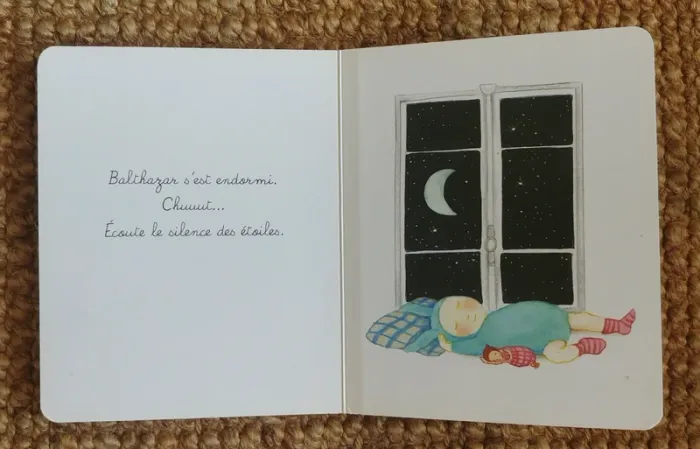 Balthazar s'est endormi.
Chuuut...
Écoute le silence des étoiles.